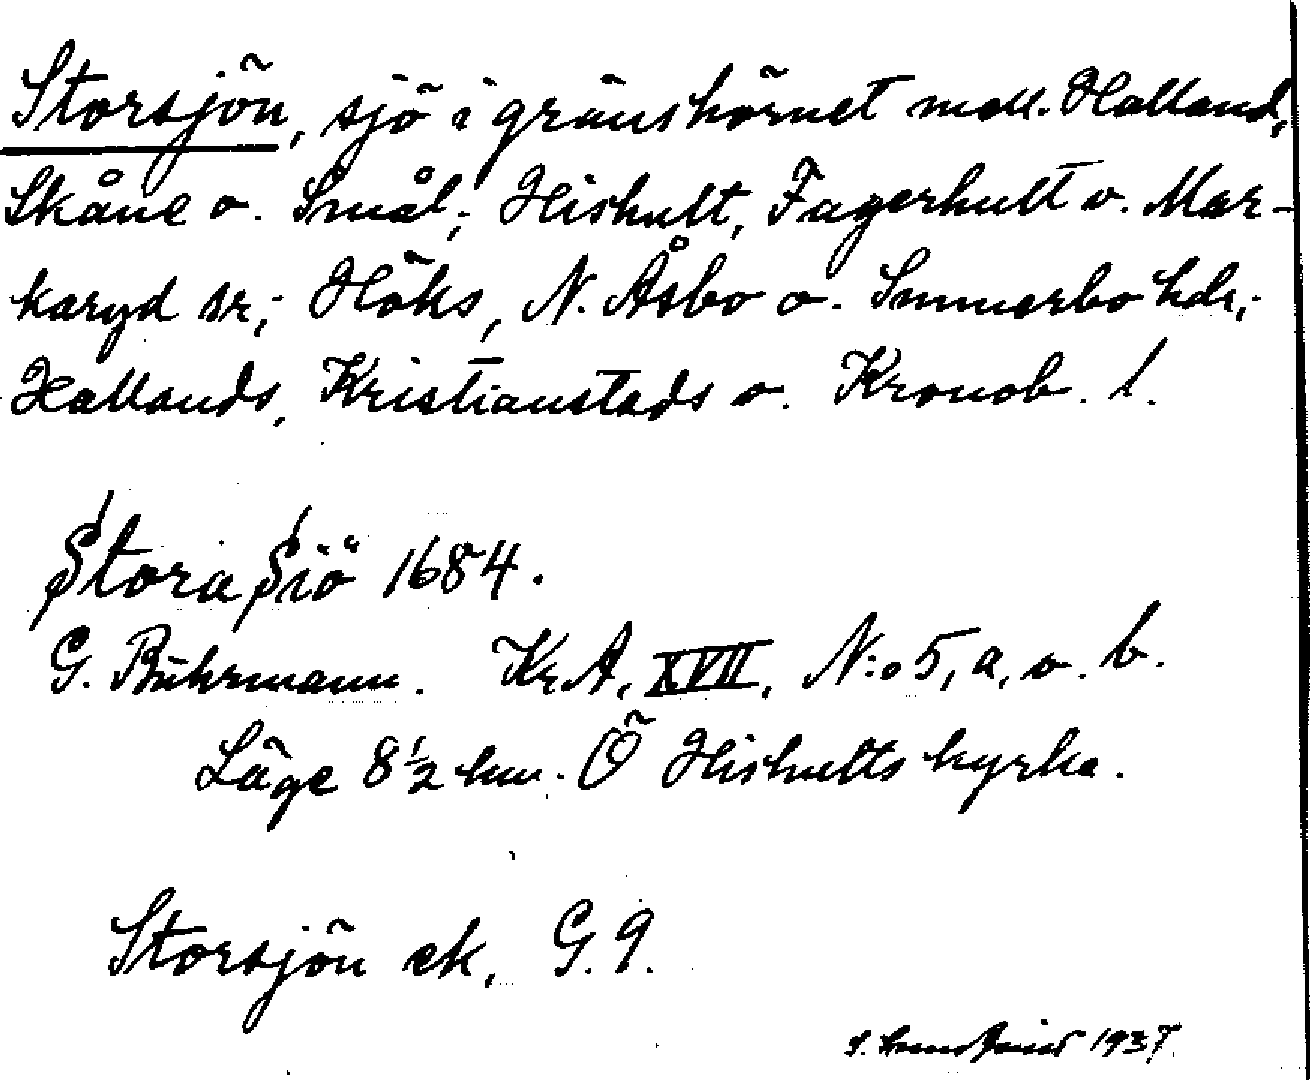 Storsjön, sjö i gränshörnet mell. Halland,
Skåne o. Smål.; Hishult, Fagerhult o. Mar-
karyd sr; Höks, N. Åsbo o. Sunnerbo hdr;
Hallands, Kristianstads o. Kronob. l.
Stora Siö 1684.
G. Buhrmann. Kr.A. XVII, N:o 5, a, o. b.
Läge 8 1/2 km. Ö Hishults kyrka.
Storsjön ek. G. 9.
1937